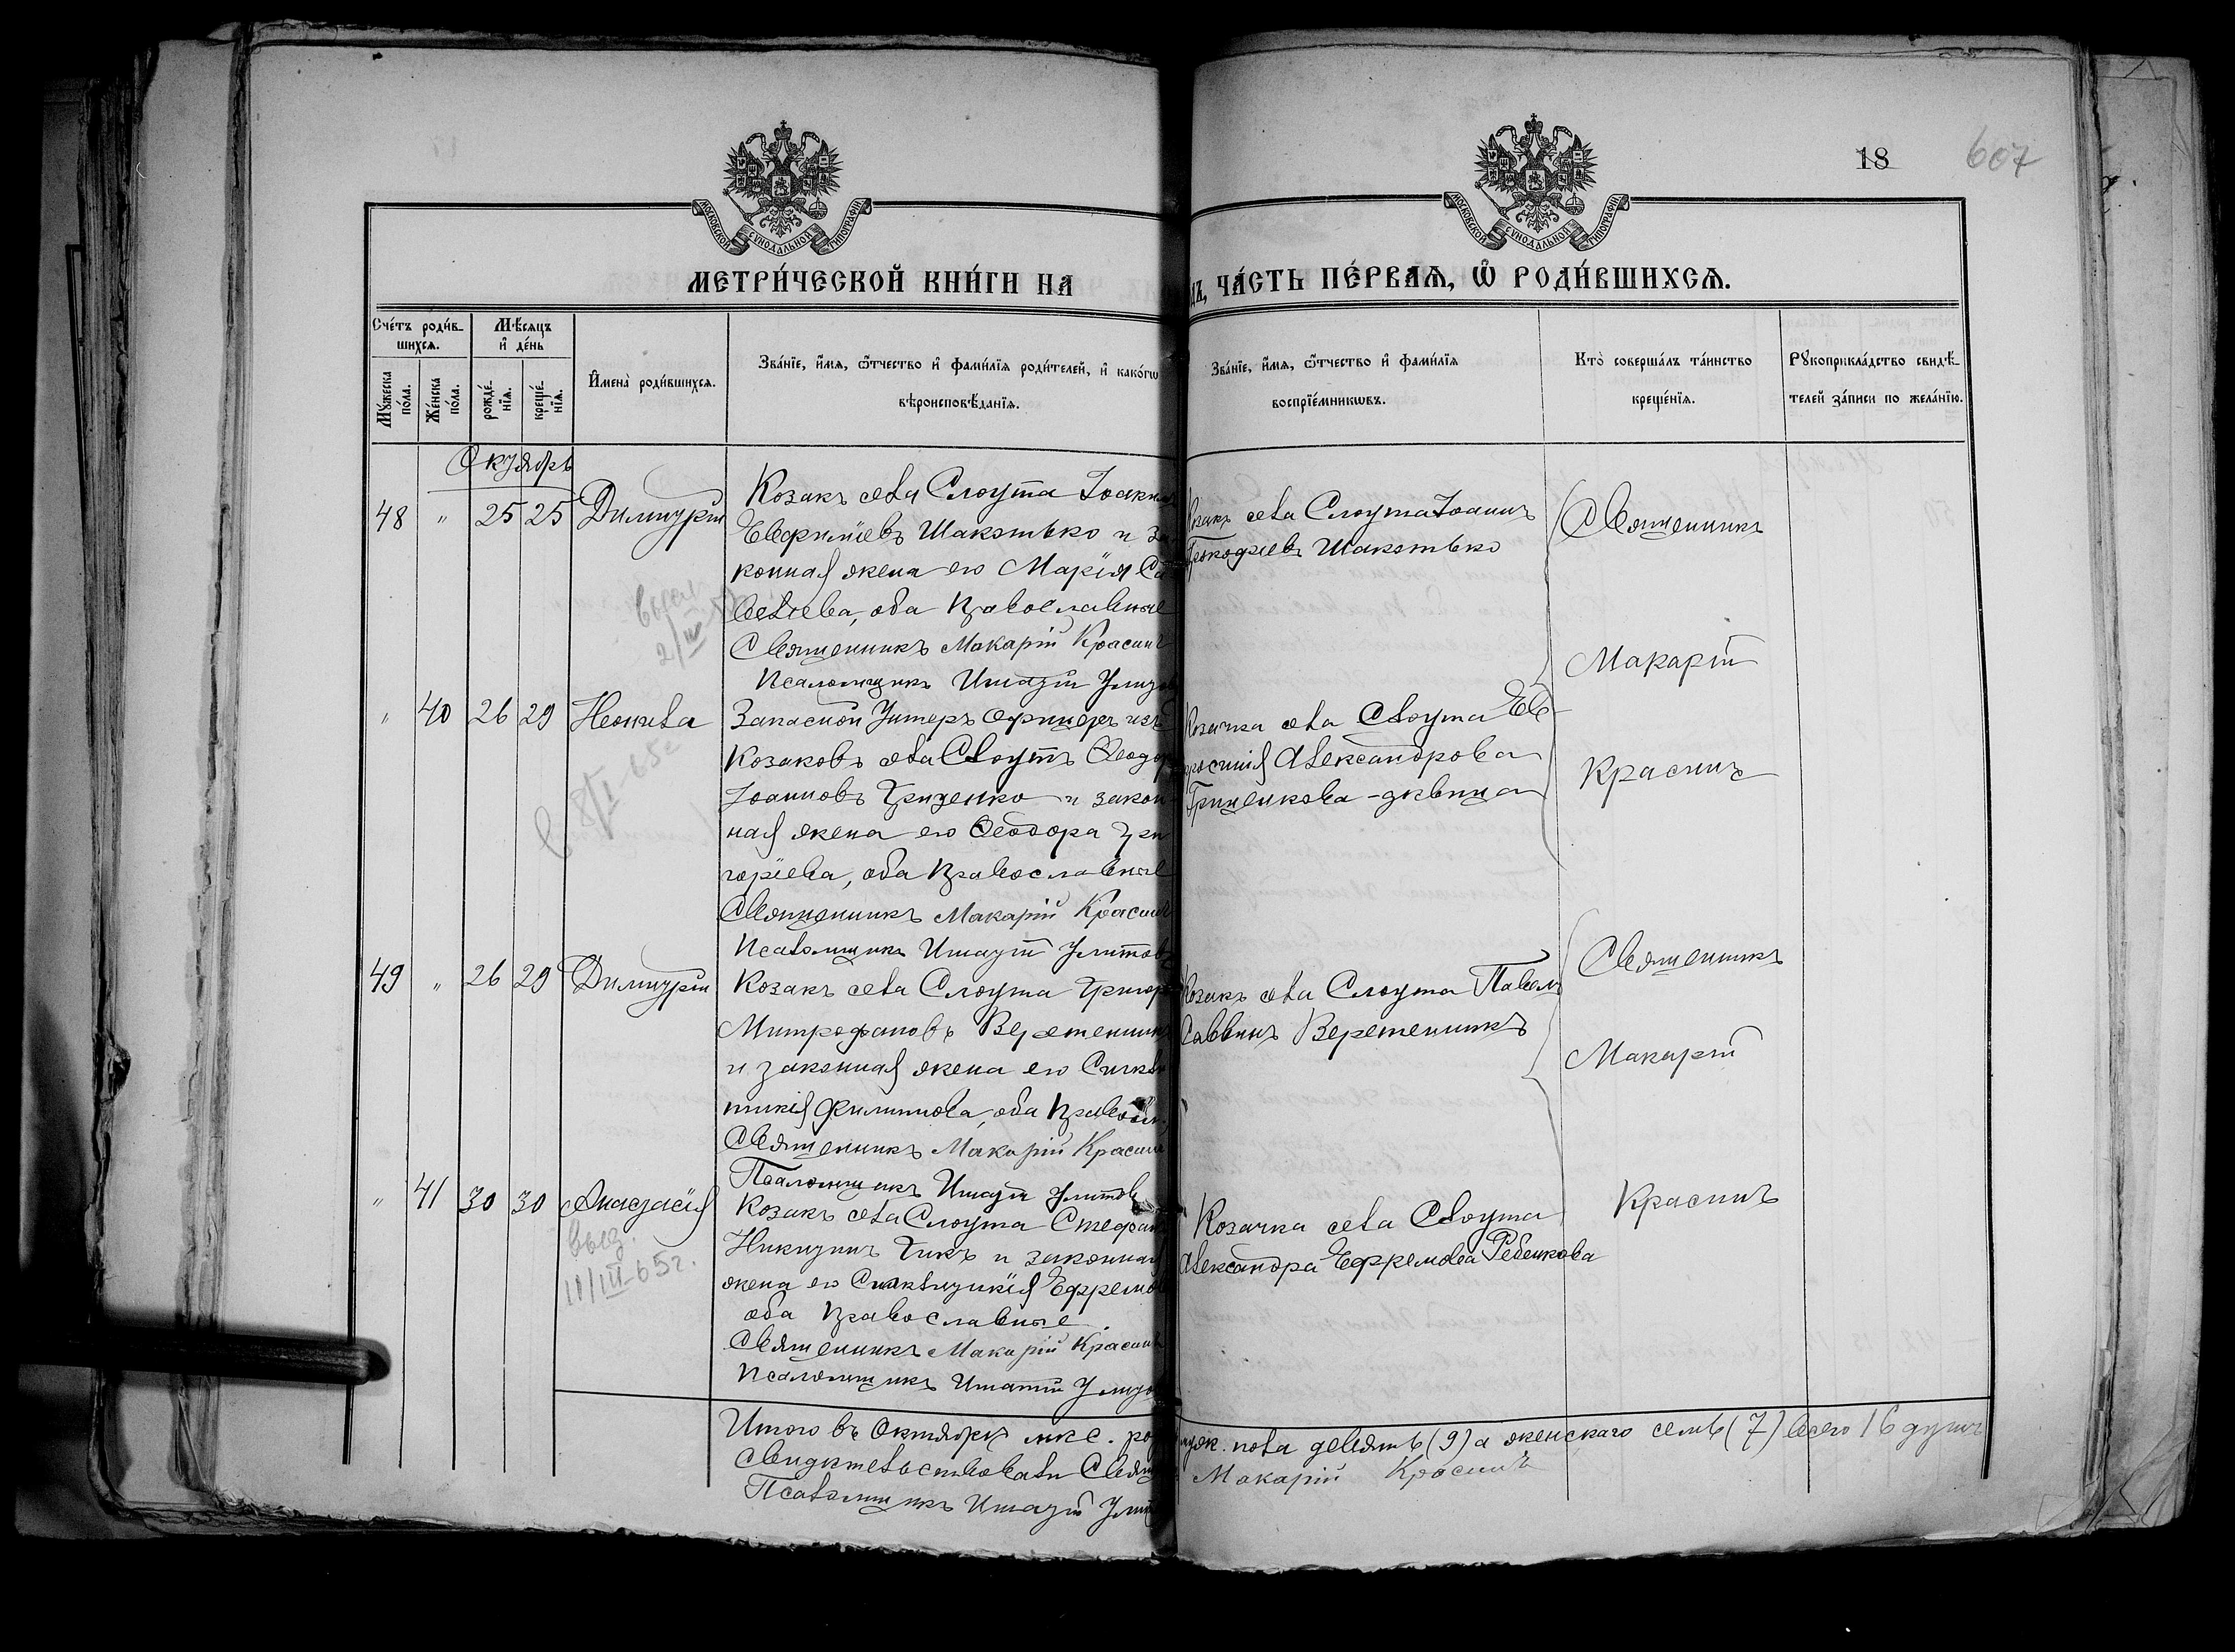 18 607
МОСКОВСКОЙ СУНОДАЛЬНОЙ ТИПОГРАФІИ
МОСКОВСКОЙ СУНОДАЛЬНОЙ ТИПОГРАФІИ
МЕТРИ́ЧЕСКОЙ КНИ́ГИ НА
ЧА́СТЬ ПЕ́РВАѦ, Ѿ РОДИ́ВШИХСѦ.
Сче́тъ роди́в-
шихсѧ.
Мꙋ́жеска по́ла.
Же́нска по́ла.
Мѣ́сѧцъ
и҆ де́нь
рожде́-
нїѧ.
креще́-
нїѧ.
И҆мена̀ роди́вшихсѧ.
Зва́нїе, и҆́мѧ, ѻ҆́тчество и҆ фами́лїѧ роди́телей, и҆ како́гѡ
вѣроисповѣ́данїѧ.
Зва́нїе, и҆́мѧ, ѻ҆́тчество и҆ фами́лїѧ
воспрїе́мникѡвъ.
Кто̀ соверша́лъ та́инство
креще́нїѧ.
Рꙋкоприкла́дство свидѣ́-
телей за́писи по жела́нїю.
Октябрь
48 " 25 25 Димитрій
Козакъ села Слоута Іоаки
Евфиміевъ Шакотько и за
конная жена его Марія Са
вельева, оба православные
Священникъ Макарій Краснич
Псаломщикъ Игнатій Улито
Козакъ села Слоута Іоаннъ
Прокофіевъ Шакотько
Священникъ
Макарій
Красничъ
2/III
" 40 26 29 Неонила
Запасной Унтеръ Офицеръ изъ
Козаковъ села Слоутъ Феодор
Іоанновъ Гриценко и закон
ная жена его Феодора Гри
горіева, оба православные
Священникъ Макарій Краснич
Псаломщикъ Игнатій Улитов
Козачка села Слоута Ев-
фросинія Александрова
Гриценкова - дѣвица
8/I-65г
49 " 26 29 Димитрій
Козакъ села Слоута Григор
Митрофановъ Веретенник
и законная жена его Синкли
тикія Филиппова, оба правосл.
Священникъ Макарій Красни
Псаломщикъ Игнатій Улитов
Козакъ села Слоута Павелъ
Саввинъ Веретенникъ
Священникъ
Макарій
Красничъ
" 41 30 30 Анастасія
выд.
11/III-65г.
Козакъ села Слоута Стефан
Никитинъ Чикъ и законная
жена его Синклитикія Ефремов
оба православные
Священникъ Макарій Краснич
Псаломщикъ Игнатій Улито
Козачка села Слоута
Александра Ефремова Ребенкова
Итого въ Октябрѣ мѣс. ро муж. пола девять (9) а женскаго семь (7) всего 16 душъ
Свидѣтельствовали Свящ Макарій Красничъ
Псаломщикъ Игнатій Улит